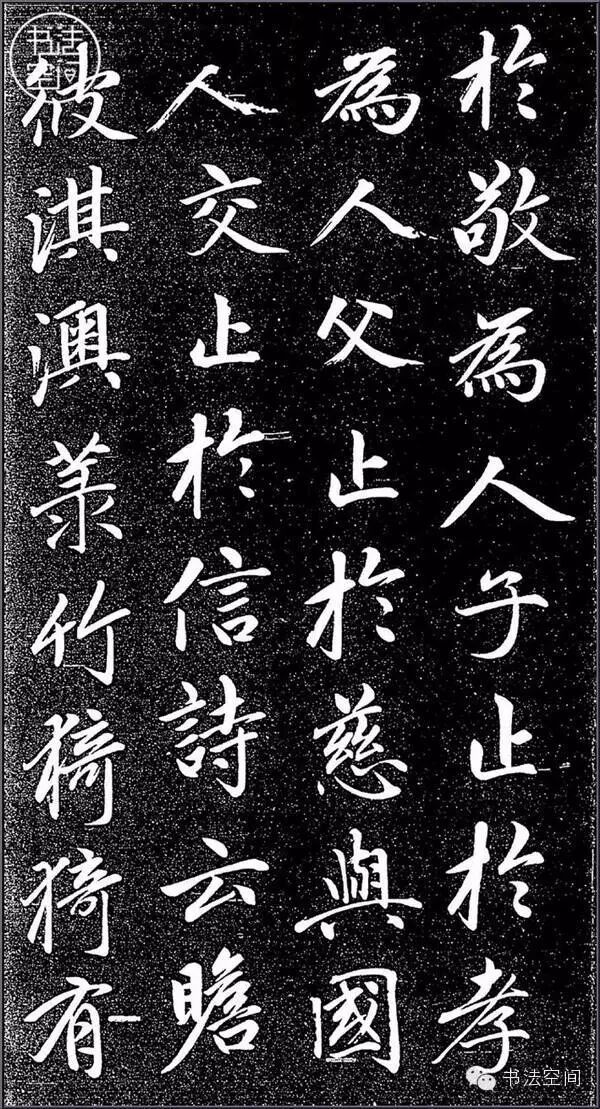 於敬為人子止於孝
為人父止於慈與國
人交止於信詩云瞻
彼淇澳菉竹猗猗有
书法
空间
书法空间